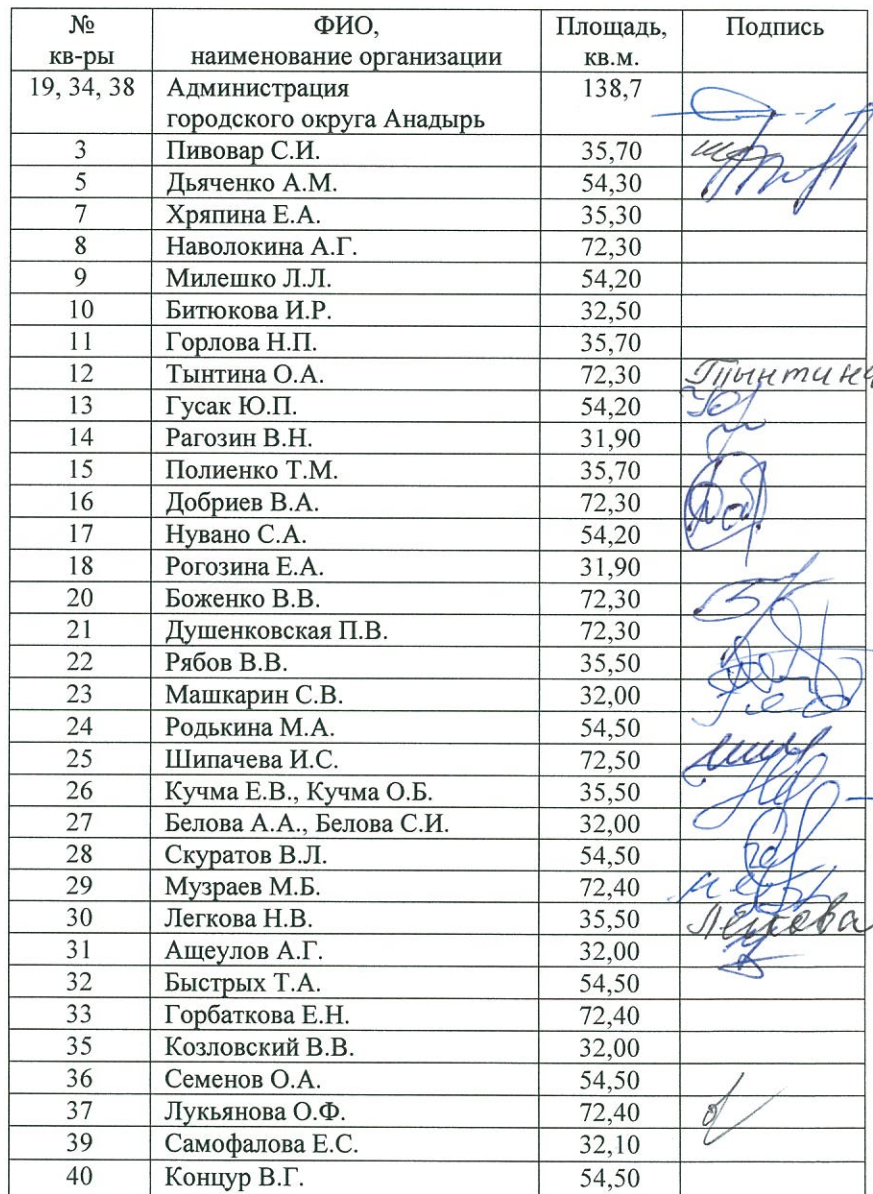 № кв-ры ФИО, наименование организации Площадь, кв.м. Подпись
19, 34, 38 Администрация городского округа Анадырь 138,7
3 Пивовар С.И. 35,70
5 Дьяченко А.М. 54,30
7 Хряпина Е.А. 35,30
8 Наволокина А.Г. 72,30
9 Милешко Л.Л. 54,20
10 Битюкова И.Р. 32,50
11 Горлова Н.П. 35,70
12 Тынтина О.А. 72,30 Тынтина
13 Гусак Ю.П. 54,20
14 Рагозин В.Н. 31,90
15 Полиенко Т.М. 35,70
16 Добриев В.А. 72,30
17 Нувано С.А. 54,20
18 Рогозина Е.А. 31,90
20 Боженко В.В. 72,30
21 Душенковская П.В. 72,30
22 Рябов В.В. 35,50
23 Машкарин С.В. 32,00
24 Родькина М.А. 54,50
25 Шипачева И.С. 72,50
26 Кучма Е.В., Кучма О.Б. 35,50
27 Белова А.А., Белова С.И. 32,00
28 Скуратов В.Л. 54,50
29 Музраев М.Б. 72,40
30 Легкова Н.В. 35,50 Легкова
31 Ащеулов А.Г. 32,00
32 Быстрых Т.А. 54,50
33 Горбаткова Е.Н. 72,40
35 Козловский В.В. 32,00
36 Семенов О.А. 54,50
37 Лукьянова О.Ф. 72,40
39 Самофалова Е.С. 32,10
40 Концур В.Г. 54,50